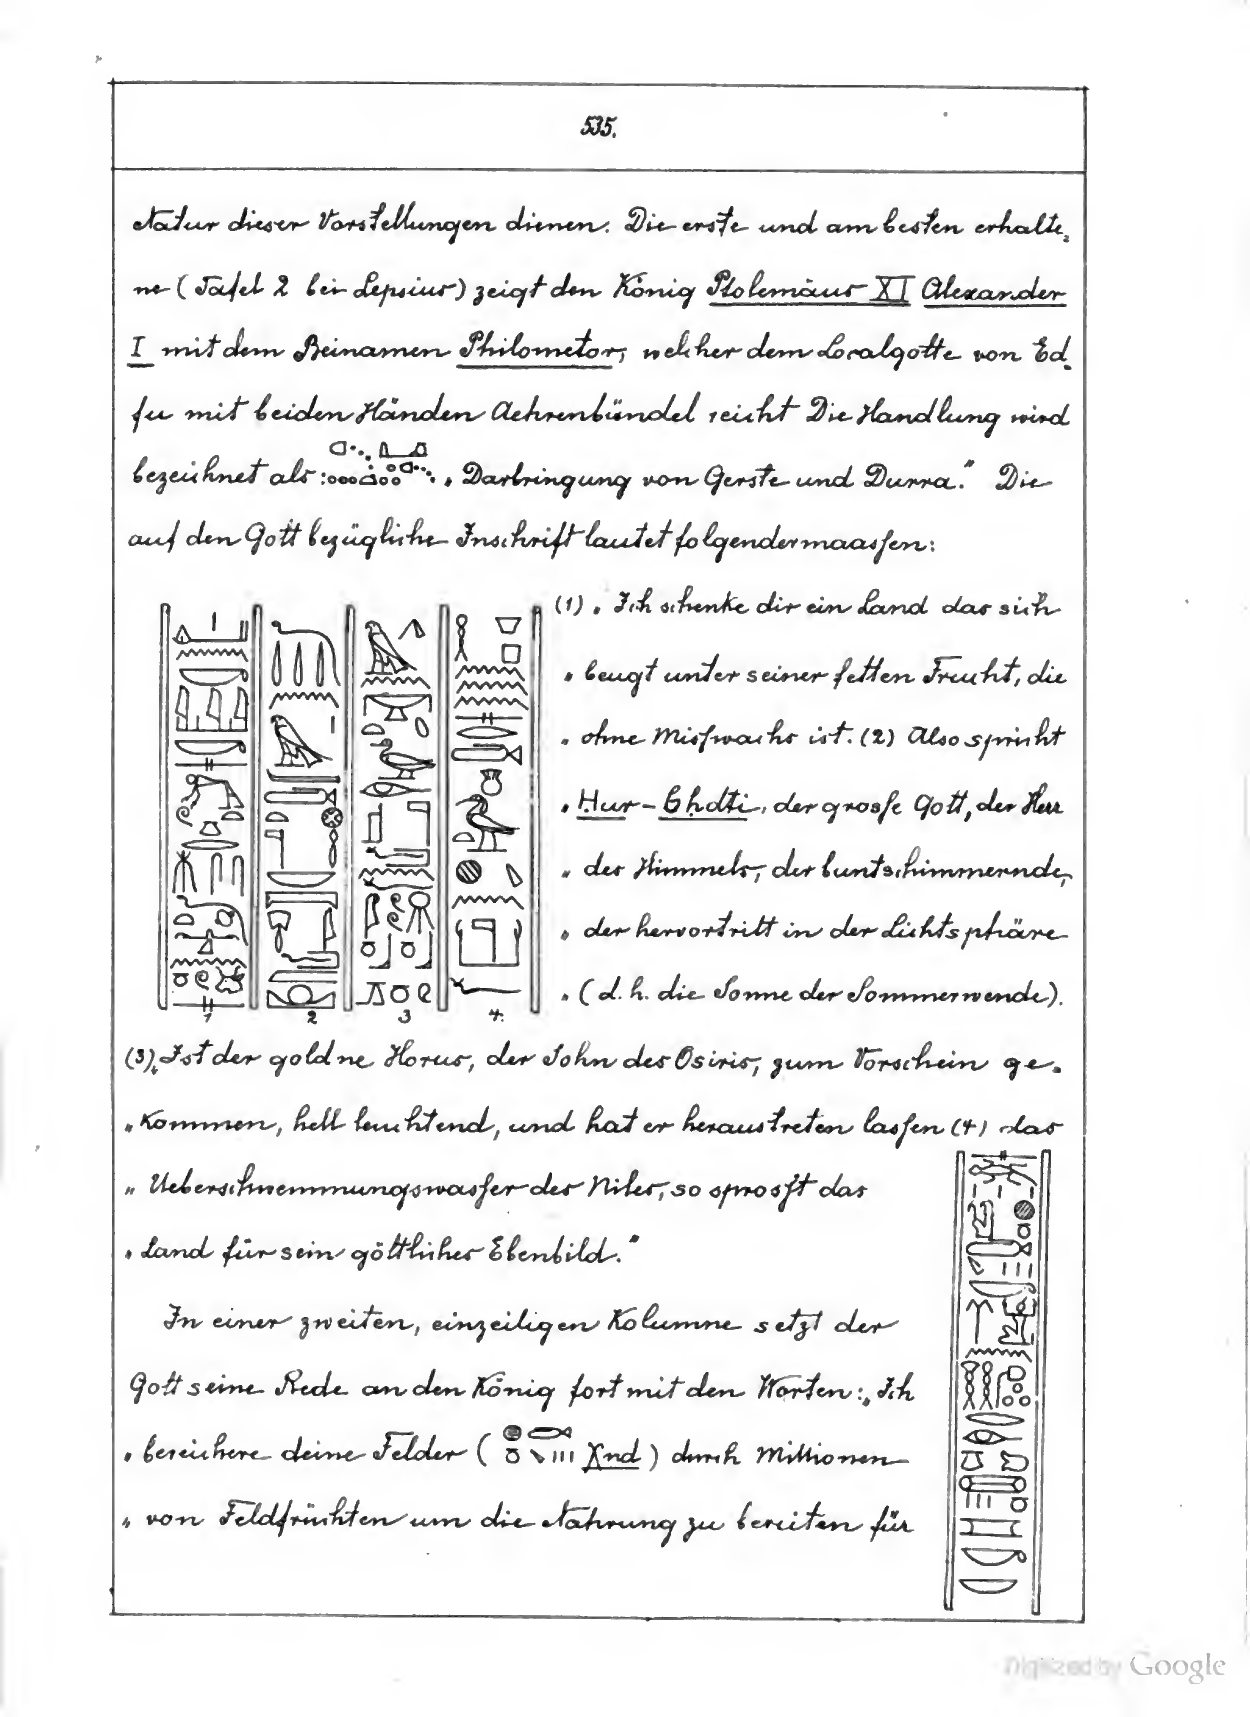 535.
Natur dieser Vorstellungen dienen. Die erste und am besten erhalte-
ne (Tafel 2 bei Lepsius) zeigt den König Ptolemäus XI Alexander
I mit dem Beinamen Philometor, welcher dem Localgotte von Ed-
fu mit beiden Händen Aehrenbündel reicht Die Handlung wird
bezeichnet als: „Darbringung von Gerste und Durra." Die
auf den Gott bezügliche Inschrift lautet folgendermaassen:
(1) „Ich schenke dir ein Land das sich
„beugt unter seiner fetten Frucht, die
„ohne Misswachs ist. (2) Also spricht
„Hur-Bhdti, der grosse Gott, der Herr
„des Himmels, der buntschimmernde,
„der hervortritt in der Lichtsphäre
„(d. h. die Sonne der Sommerwende).
(3) „Ist der goldne Horus, der Sohn des Osiris, zum Vorschein ge-
„kommen, hell leuchtend, und hat er heraustreten lassen (4) das
„Ueberschwemmungswasser des Niles, so sprosst das
„Land für sein göttliches Ebenbild."
In einer zweiten, einzeiligen Kolumne setzt der
Gott seine Rede an den König fort mit den Worten: „Ich
„bereichere deine Felder ( χnd) durch Millionen
„von Feldfrüchten um die Nahrung zu bereiten für
1 2 3 4.
Digitized by Google